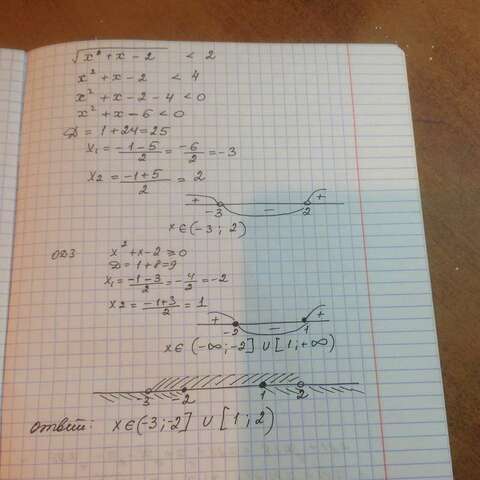 √x²+x-2 < 2
x²+x-2 < 4
x²+x-2-4<0
x²+x-6<0
D=1+24=25
x₁=(-1-5)/2=-6/2=-3
x₂=(-1+5)/2=2
+ -3 - 2 +
x∈(-3;2)
ОДЗ x²+x-2≥0
D=1+8=9
x₁=(-1-3)/2=-4/2=-2
x₂=(-1+3)/2=1
+ -2 - 1 +
x∈(-∞;-2]∪[1;+∞)
-3 -2 1 2
ответ: x∈(-3;-2]∪[1;2)